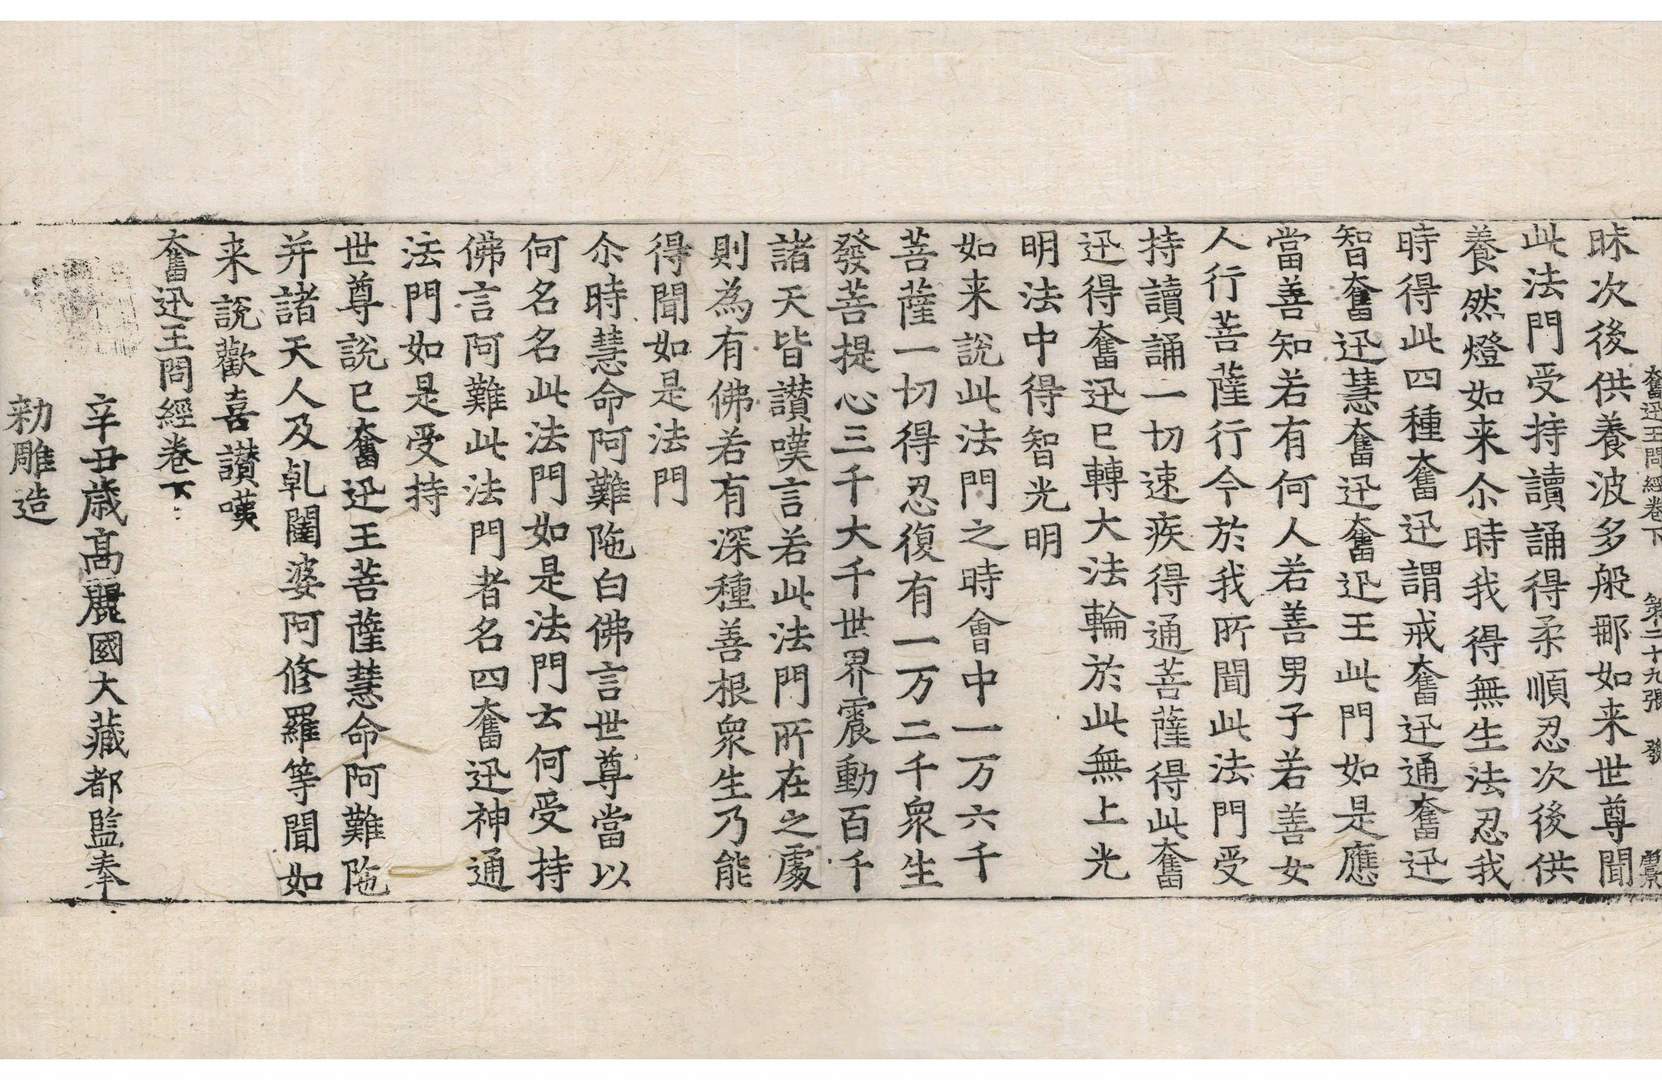 奮迅王問經卷下　第二十九張　號
昧次後供養波多般那如来世尊聞
此法門受持讀誦得柔順忍次後供
養然燈如来尒時我得無生法忍我
時得此四種奮迅謂戒奮迅通奮迅
智奮迅慧奮迅奮迅王此門如是應
當善知若有何人若善男子若善女
人行菩薩行今於我所聞此法門受
持讀誦一切速疾得通菩薩得此奮
迅得奮迅已轉大法輪於此無上光
明法中得智光明
如来說此法門之時會中一万六千
菩薩一切得忍復有一万二千衆生
發菩提心三千大千世界震動百千
諸天皆讃嘆言若此法門所在之處
則為有佛若有深種善根衆生乃能
得聞如是法門
尒時慧命阿難陁白佛言世尊當以
何名名此法門如是法門云何受持
佛言阿難此法門者名四奮迅神通
法門如是受持
世尊說已奮迅王菩薩慧命阿難陁
并諸天人及乹闥婆阿修羅等聞如
来說歡喜讃嘆
奮迅王問經卷下
辛丑歳高麗國大藏都監奉
勑雕造